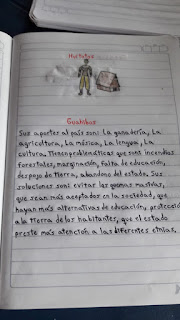 Habitates
Guahibos
Sus aportes al país son: La ganadería, La
agricultura, La música, La lengua, La
cultura. Tienen problemáticas que son: incendios
forestales, marginación, falta de educación,
despojo de tierra, abandono del estado. Sus
soluciones son: evitar las quemas masivas,
que sean más aceptados en la sociedad, que
hayan más alternativas de educación, protección
a la tierra de los habitantes, que el estado
preste más atención a las diferentes etnias.